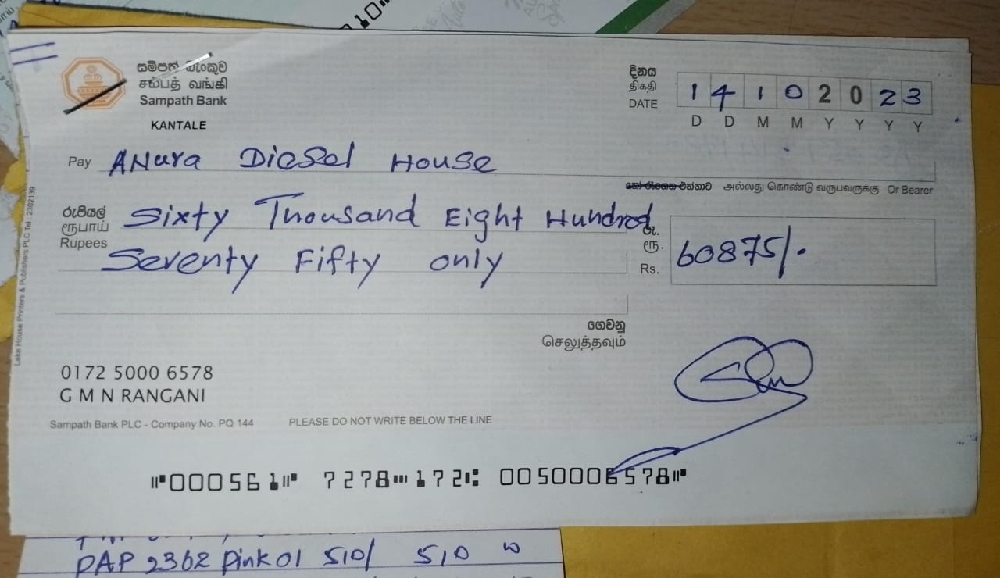 සම්පත් බැංකුව
சம்பத் வங்கி
Sampath Bank
KANTALE
දිනය
திகதி
DATE
1 4 1 0 2 0 2 3
D D M M Y Y Y Y
Pay Anura Diesel House
அல்லது கொண்டு வருபவருக்கு Or Bearer
රුපියල්
ரூபாய்
Rupees
Sixty Thousand Eight Hundred
Seventy Fifty only
රු.
ரூ.
Rs. 60875/.
ගෙවනු
செலுத்தவும்
0172 5000 6578
G M N RANGANI
Sampath Bank PLC - Company No. PQ 144 PLEASE DO NOT WRITE BELOW THE LINE
⑈000561⑈ 7278⑉172⑆ 0050006578⑈
Lake House Printers & Publishers PLC
PAP 2362 Pink 01 510/ 510